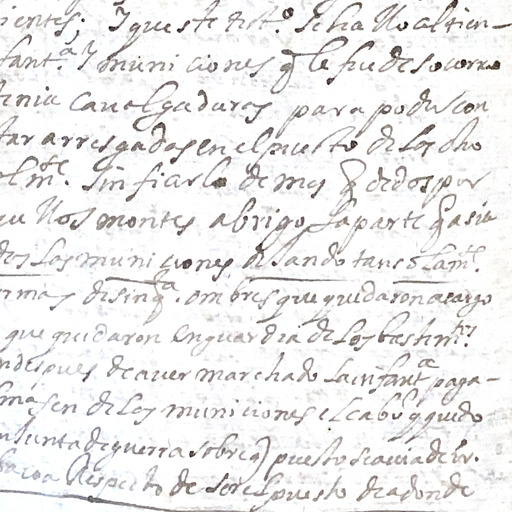 ientes. Y que este dist.º se ha llo al tien-
fant.ª Y municiones q le fue de socorro
tenia caualgaduras para poder con
tar arresgadas en el puesto de los cho
olm.te sin fiarlo de mas q de dos por
quellos montes abrigo la parte q asia
dos las municiones dejando tan solam.te
ermas de sinq.ta ombres que quedaron a cargo
que quedaron en guardia de los bastim.tos
n despues de auer marchado la infant.ª paga-
lmasen de las municiones el cabo q quedo
n Junta de guerra sobre q puesto se auia de ir.
Respecto de ser el puesto de adonde